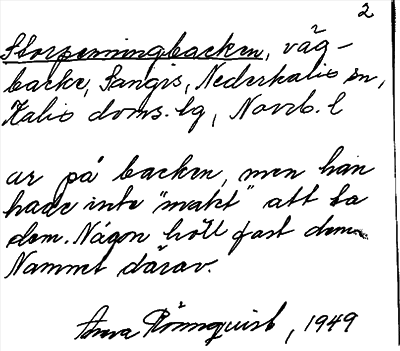 2
Storpenningbacken, väg-
backe, Sangis, Nederkalix sn,
Kalix doms.lg, Norrb. l
ar på backen, men han
hade inte "makt" att ta
dem. Någon höll fast dem.
Namnet därav.
Anna Rönnquist, 1949